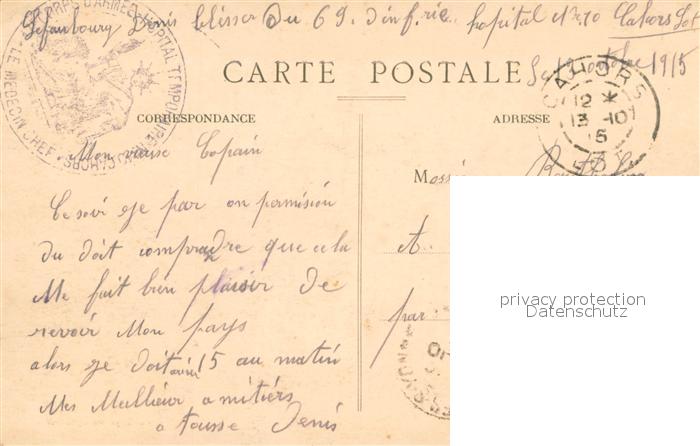 Lefaubourg Denis blesser du 69 d'inf.rie hopital No 10 Cahors Lot
Le 12 octobre 1915
CORPS D'ARMÉE HOPITAL TEMPORAIRE
CAHORS
LE MÉDECIN CHEF
CARTE POSTALE
CAHORS
12 *
13 -10
15
CORRESPONDANCE
ADRESSE
Mon vieuse Copain
Ce soir je par on permision
du doit compradre que cela
Me fait bien plaisir De
revoir Mon pays
alors je doit arriv 15 au matin
Mes Mellieur amitiérs
a tousse Denis
Mossi
A
par
privacy protection
Datenschutz